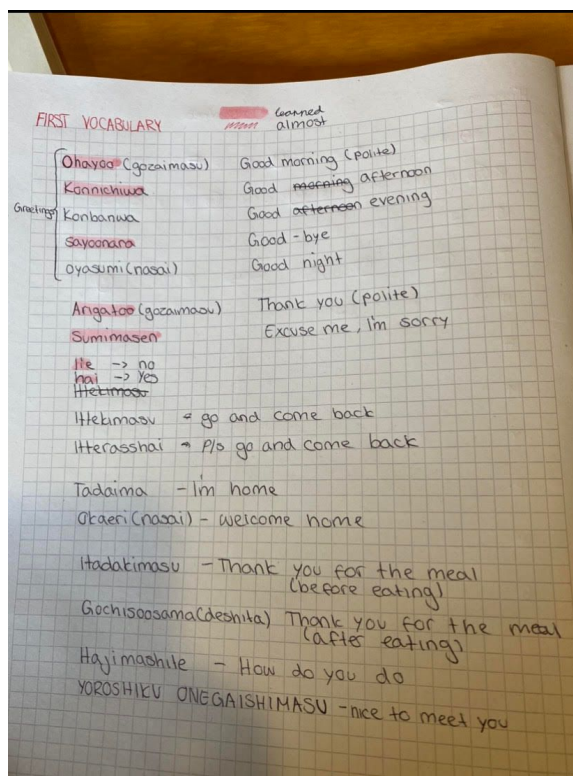 FIRST VOCABULARY
learned
almost
Ohayoo (gozaimasu) Good morning (polite)
Konnichiwa Good morning afternoon
Greetings Konbanwa Good afternoon evening
Sayoonara Good-bye
oyasumi (nasai) Good night
Arigatoo (gozaimasu) Thank you (polite)
Sumimasen Excuse me, I'm sorry
Iie -> no
hai -> Yes
Ittekimasu
Ittekimasu = go and come back
Itterasshai = pls go and come back
Tadaima - I'm home
Okaeri (nasai) - welcome home
Itadakimasu - Thank you for the meal
(before eating)
Gochisoosama (deshita) Thank you for the meal
(after eating)
Hajimashite - How do you do
YOROSHIKU ONEGAISHIMASU - nice to meet you